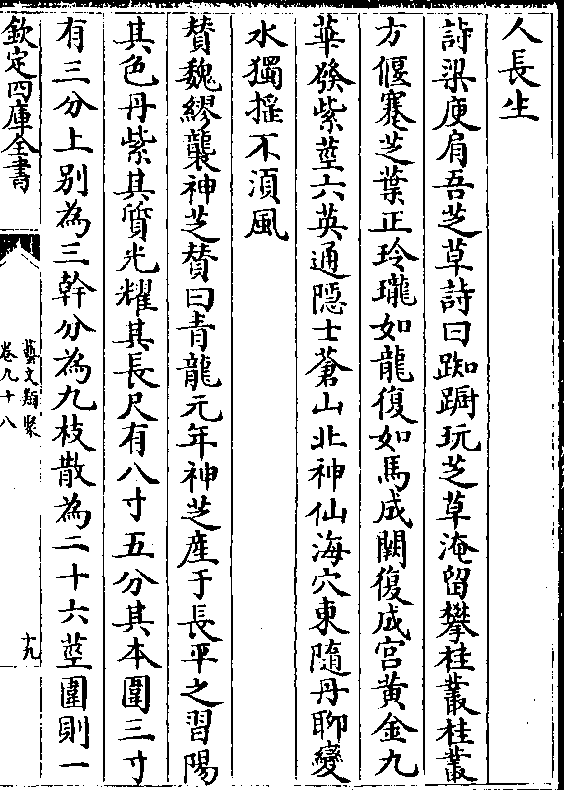 人長生
詩梁庾肩吾芝草詩曰踟蹰玩芝草淹留攀桂叢桂叢
方偃蹇芝葉正玲瓏如龍復如馬成闕復成宫黄金九
華發紫莖六英通隠士蒼山北神仙海穴東隨丹聊變
水獨摇不湏風
賛魏繆襲神芝賛曰青龍元年神芝産于長平之習陽
其色丹紫其質光耀其長尺有八寸五分其本圍三寸
有三分上别為三幹分為九枝散為二十六莖圍則一
欽定四庫全書
藝文類聚
卷九十八
十九